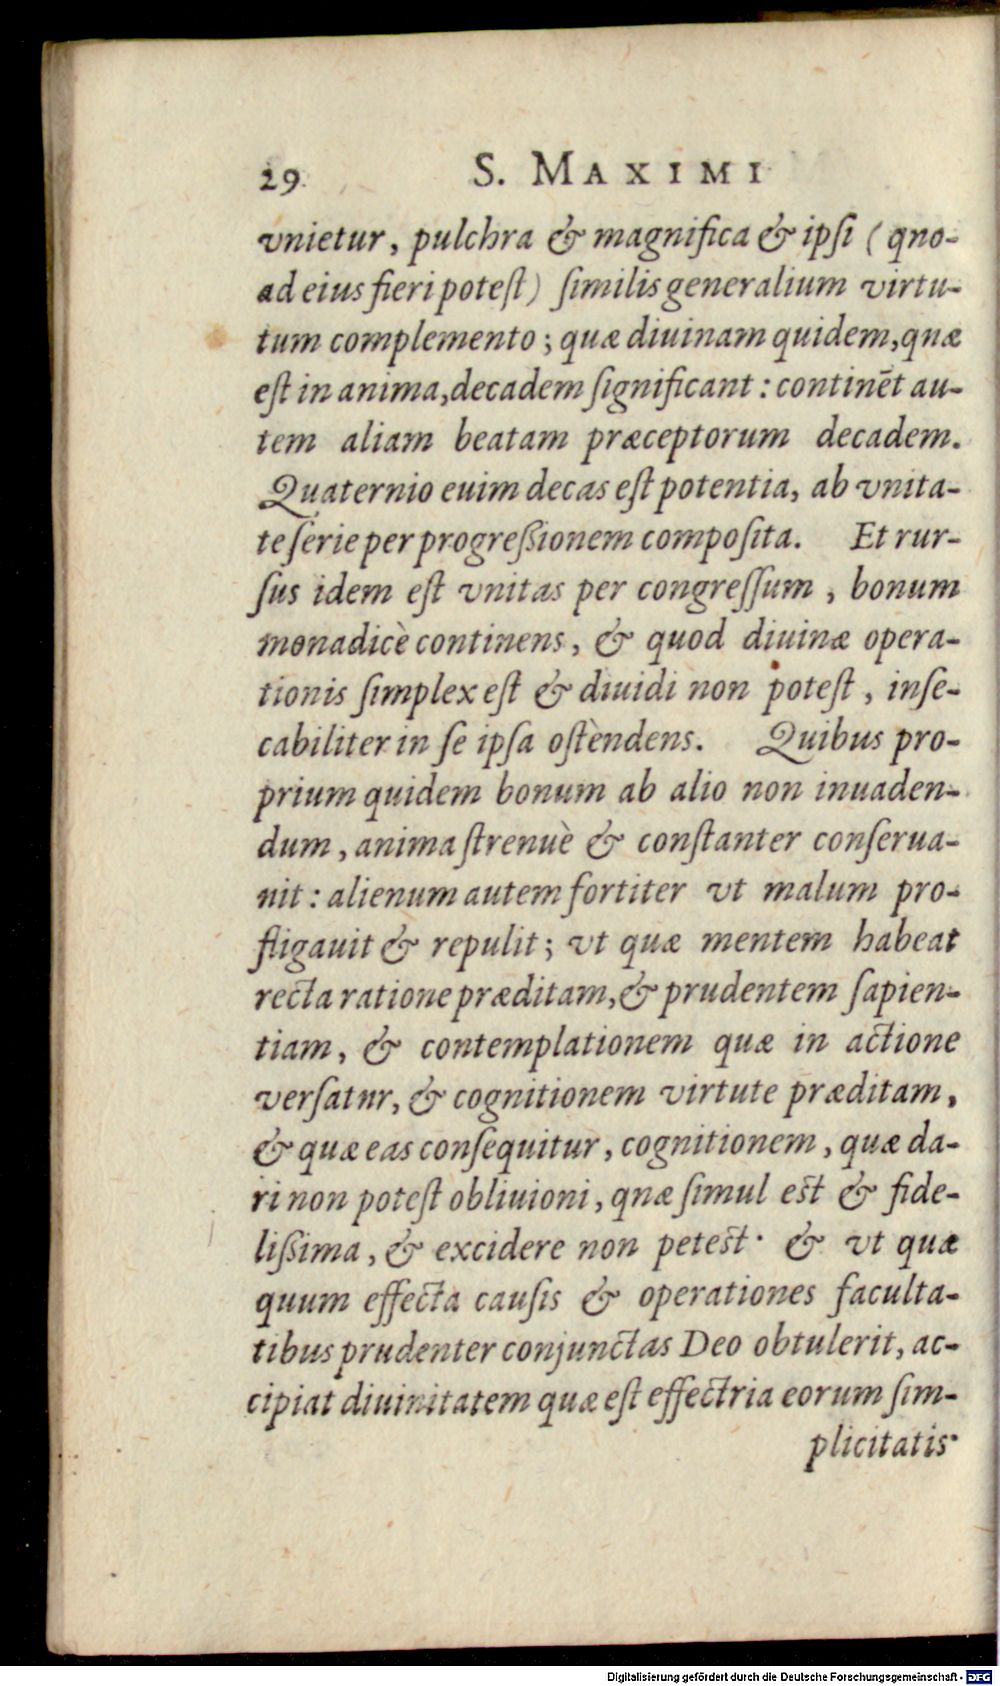 29 S. MAXIMI
vnietur, pulchra & magnifica & ipſi (qno-
ad eius fieri poteſt) ſimilis generalium virtu-
tum complemento; quæ diuinam quidem, qnæ
eſt in anima, decadem ſignificant: continēt au-
tem aliam beatam præceptorum decadem.
Quaternio euim decas eſt potentia, ab vnita-
te ſerie per progreßionem compoſita. Et rur-
ſus idem eſt vnitas per congreſſum, bonum
monadicè continens, & quod diuinæ opera-
tionis ſimplex eſt & diuidi non poteſt, inſe-
cabiliter in ſe ipſa oſtèndens. Quibus pro-
prium quidem bonum ab alio non inuaden-
dum, anima ſtrenuè & conſtanter conſerua-
nit: alienum autem fortiter vt malum pro-
fligauit & repulit; vt quæ mentem habeat
recta ratione præditam, & prudentem ſapien-
tiam, & contemplationem quæ in actione
verſatnr, & cognitionem virtute præditam,
& quæ eas conſequitur, cognitionem, quæ da-
ri non poteſt obliuioni, qnæ ſimul eſt & fide-
lißima, & excidere non peteſt· & vt quæ
quum effecta cauſis & operationes faculta-
tibus prudenter conjunctas Deo obtulerit, ac-
cipiat diuinitatem quæ eſt effectria eorum ſim-
plicitatis·
Digitalisierung gefördert durch die Deutsche Forschungsgemeinschaft - DFG